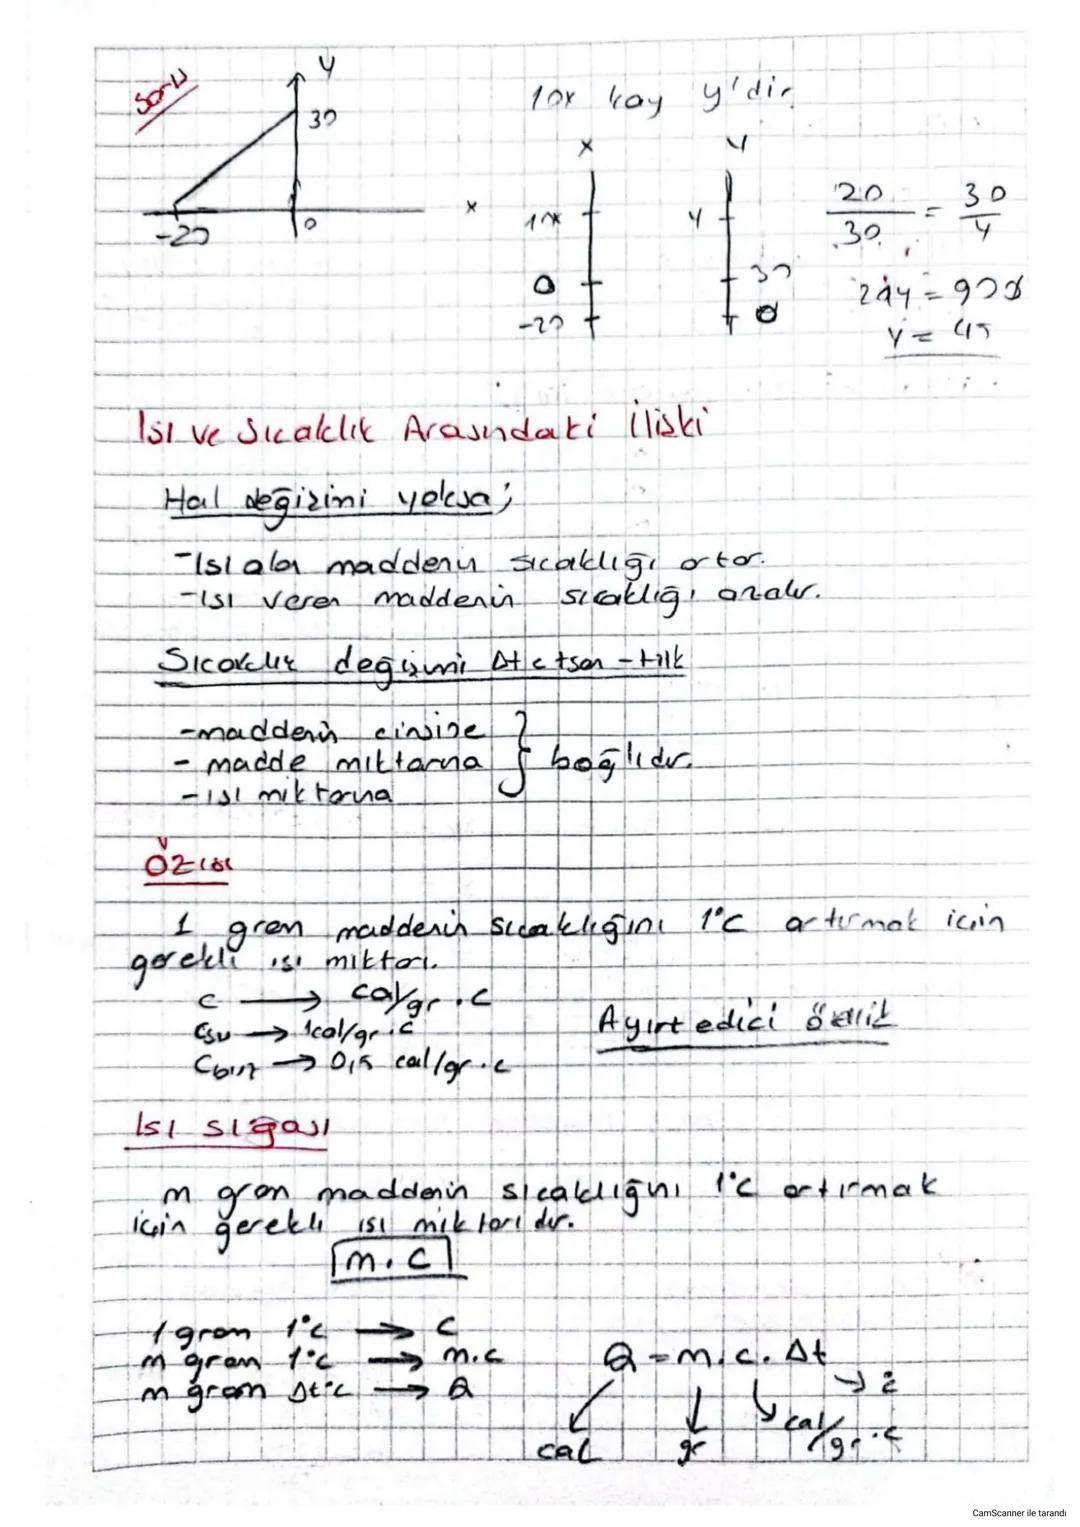 Soru
y
30
x
-20
0
10x kaç y'dir
x
y
10x
y
0
30
-20
0
20/30 = 30/y
20y = 900
y = 45
Isı ve Sıcaklık Arasındaki İlişki
Hal değişimi yoksa;
-Isı alan maddenin sıcaklığı artar.
-ısı veren maddenin sıcaklığı azalır.
Sıcaklık değişimi Δt = tson - tilk
-maddenin cinsine
- madde miktarına } bağlıdır.
-ısı miktarına
Özısı
1 gram maddenin sıcaklığını 1°C artırmak için
gerekli ısı miktarı.
c → cal/gr.c
csu → 1cal/gr.c
Ayırt edici özellik
Cbuz → 0,5 cal/gr.c
Isı sığası
m gram maddenin sıcaklığını 1°C artırmak
için gerekli ısı miktarıdır.
m.c
1 gram 1°c → c
m gram 1°c → m.c
m gram Δt°c → Q
Q = m.c.Δt
cal
gr
cal/gr.c
CamScanner ile tarandı